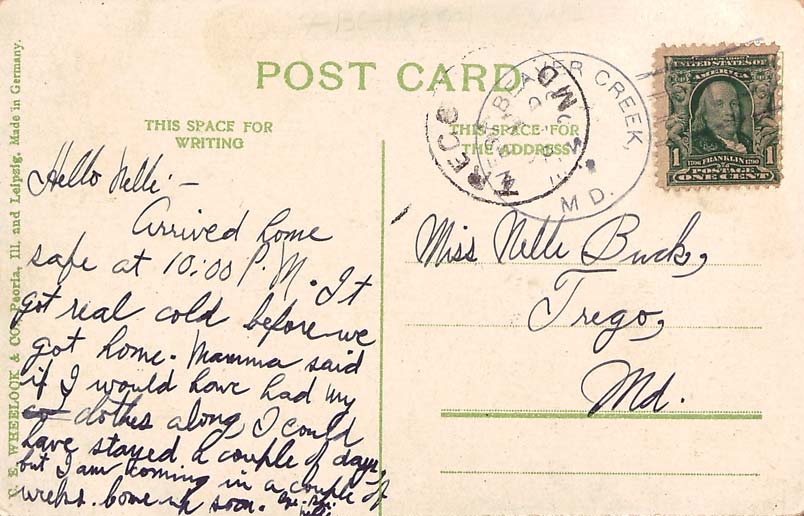 POST CARD
THIS SPACE FOR
WRITING
THIS SPACE FOR
THE ADDRESS
C. E. WHEELOCK & CO. Peoria, Ill. and Leipzig. Made in Germany.
BEAVER CREEK,
MD.
TREGO
MD
UNITED STATES OF
AMERICA
1 FRANKLIN 1
POSTAGE
ONE CENT
Hello Nelle:—
Arrived home
safe at 10:00 P.M. It
got real cold before we
got home. Mamma said
if I would have had my
clothes along, I could
have stayed a couple of days,
but I am coming in a couple of
weeks. Come up soon.
Miss Nelle Buck,
Trego,
Md.